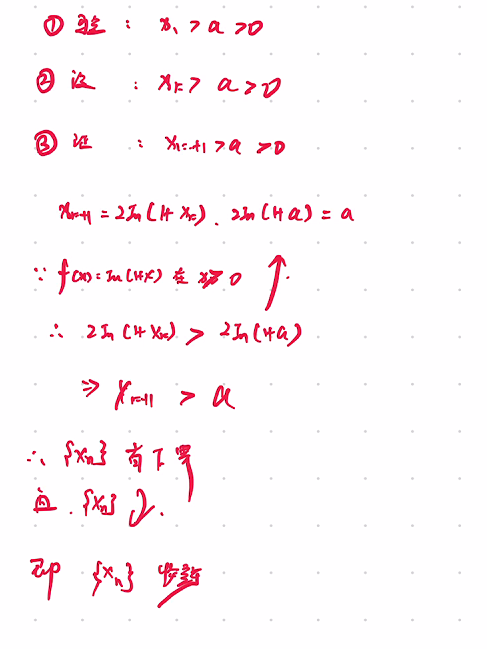 ① 验 : x₁ > a > 0
② 设 : xₖ > a > 0
③ 证 : xₖ₊₁ > a > 0
xₖ₊₁ = 2ln(1+xₖ). 2ln(1+a) = a
∵ f(x) = ln(1+x) 在 x>0 ↑.
∴ 2ln(1+xₖ) > 2ln(1+a)
⇒ xₖ₊₁ > a
∴ {xₙ} 有下界
且. {xₙ} ↓.
即 {xₙ} 收敛